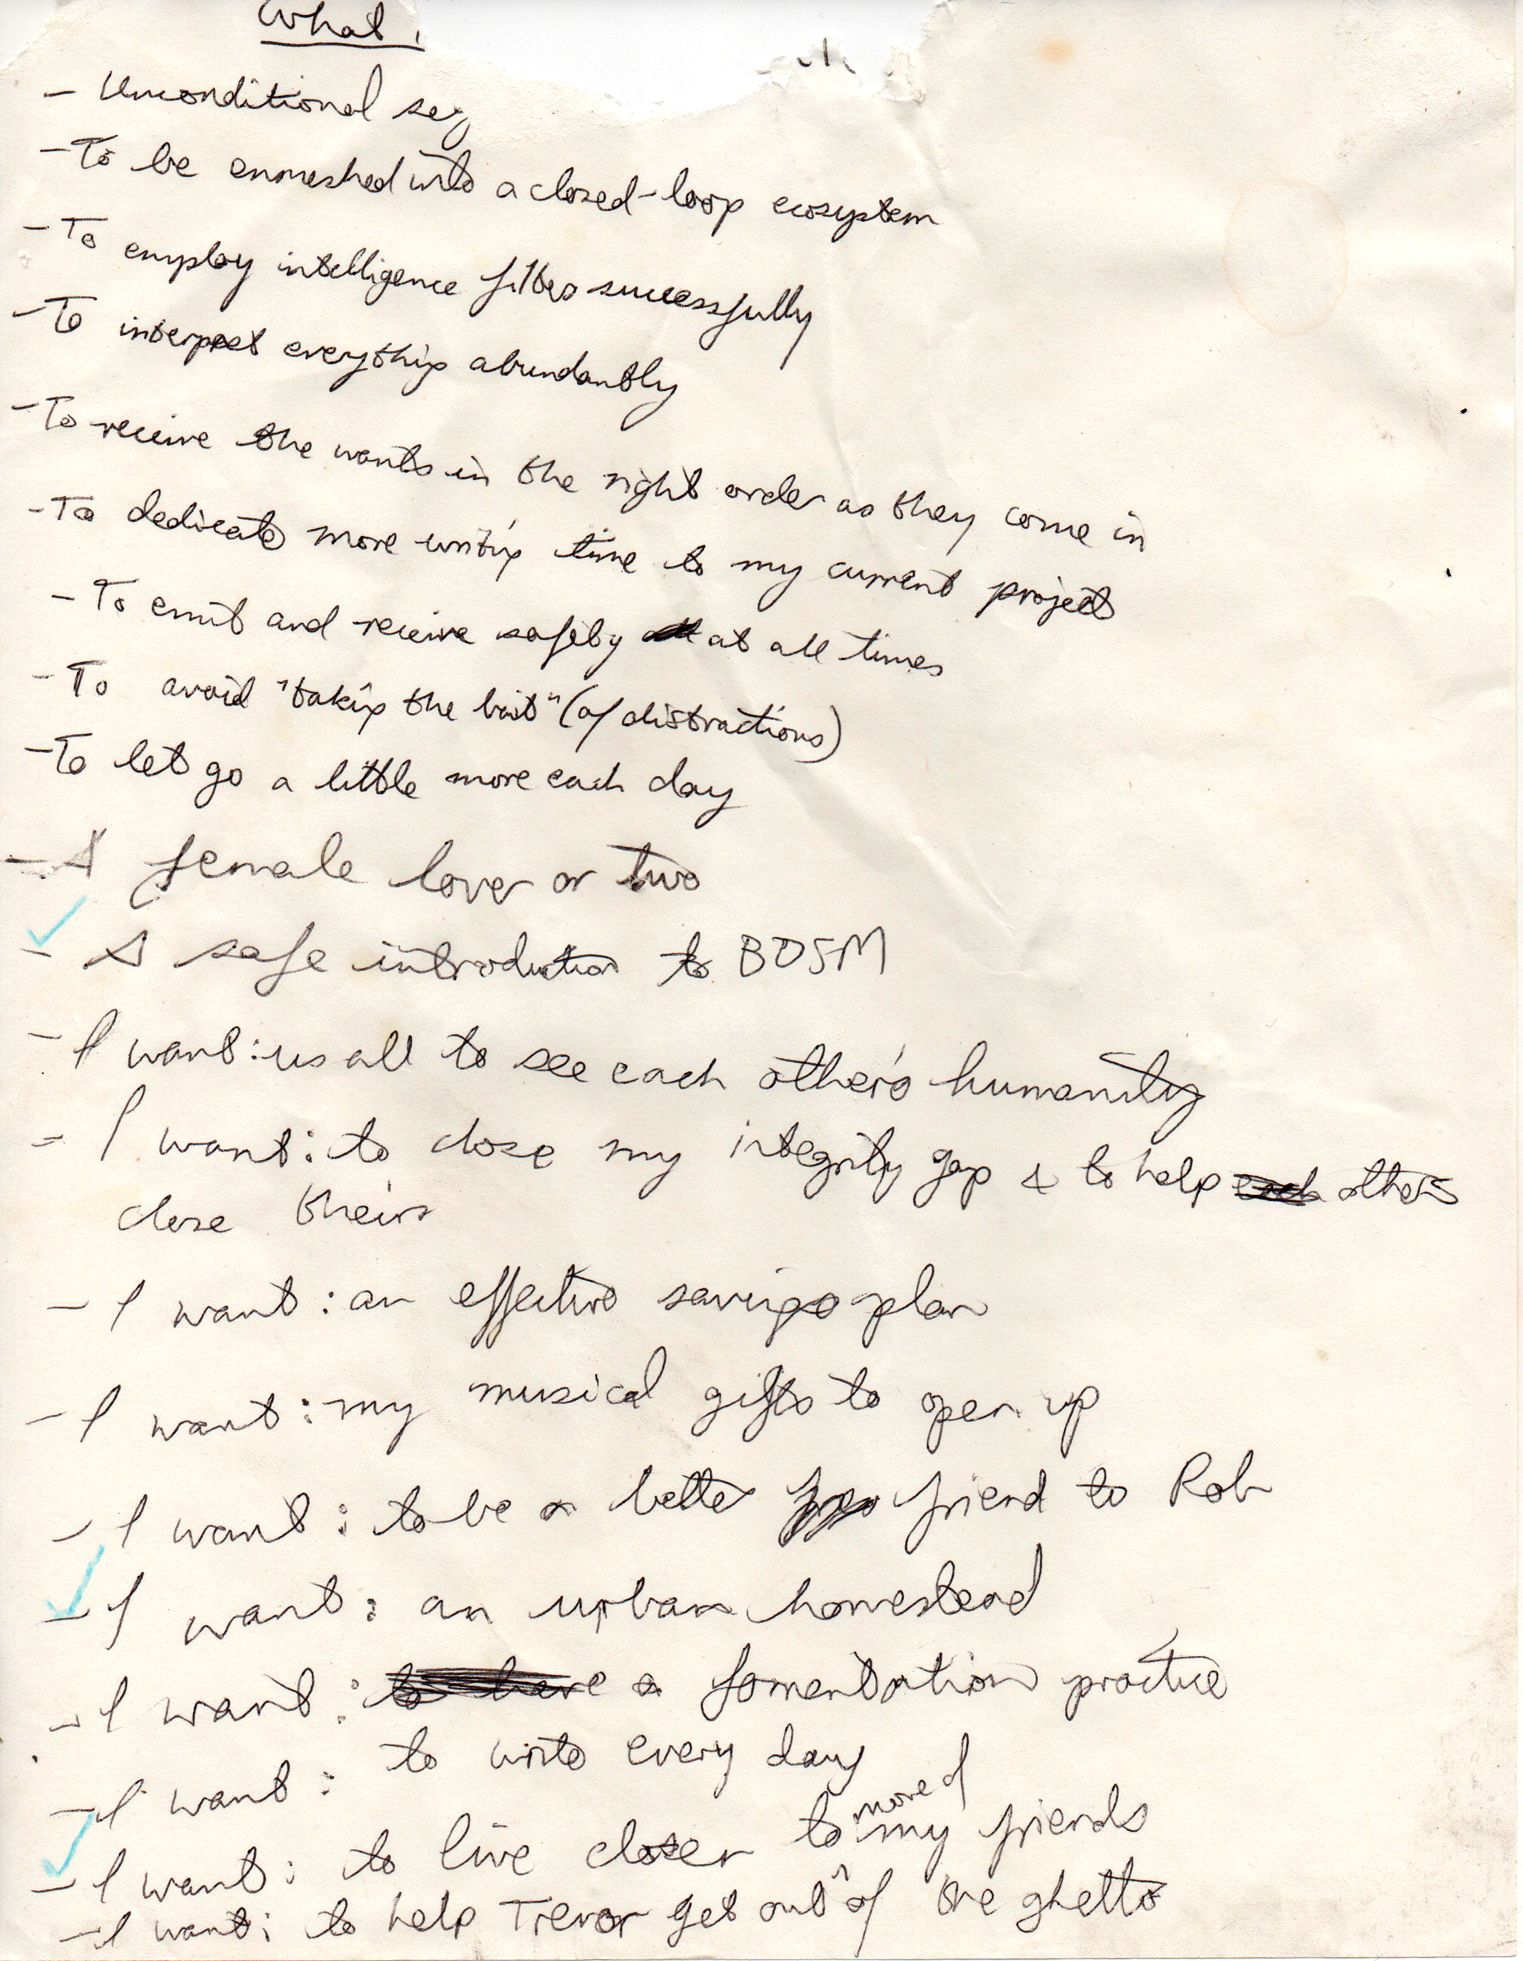 What
- Unconditional
- To be enmeshed into a closed-loop ecosystem
- To employ intelligence filters successfully
- To interpret everything abundantly
- To receive the wants in the right order as they come in
- To dedicate more writing time to my current project
- To emit and receive safety at all times
- To avoid "taking the bait" (of distractions)
- To let go a little more each day
- A female lover or two
- A safe introduction to BDSM
- I want: us all to see each other's humanity
- I want: to close my integrity gap & to help each others
close theirs
- I want: an effective savings plan
- I want: my musical gifts to open up
- I want: to be a better friend to Rob
- I want: an urban homestead
- I want: to have a fomentation practice
- I want: to write every day
more of
- I want: to live closer to my friends
- I want: to help Trevor get out of the ghetto